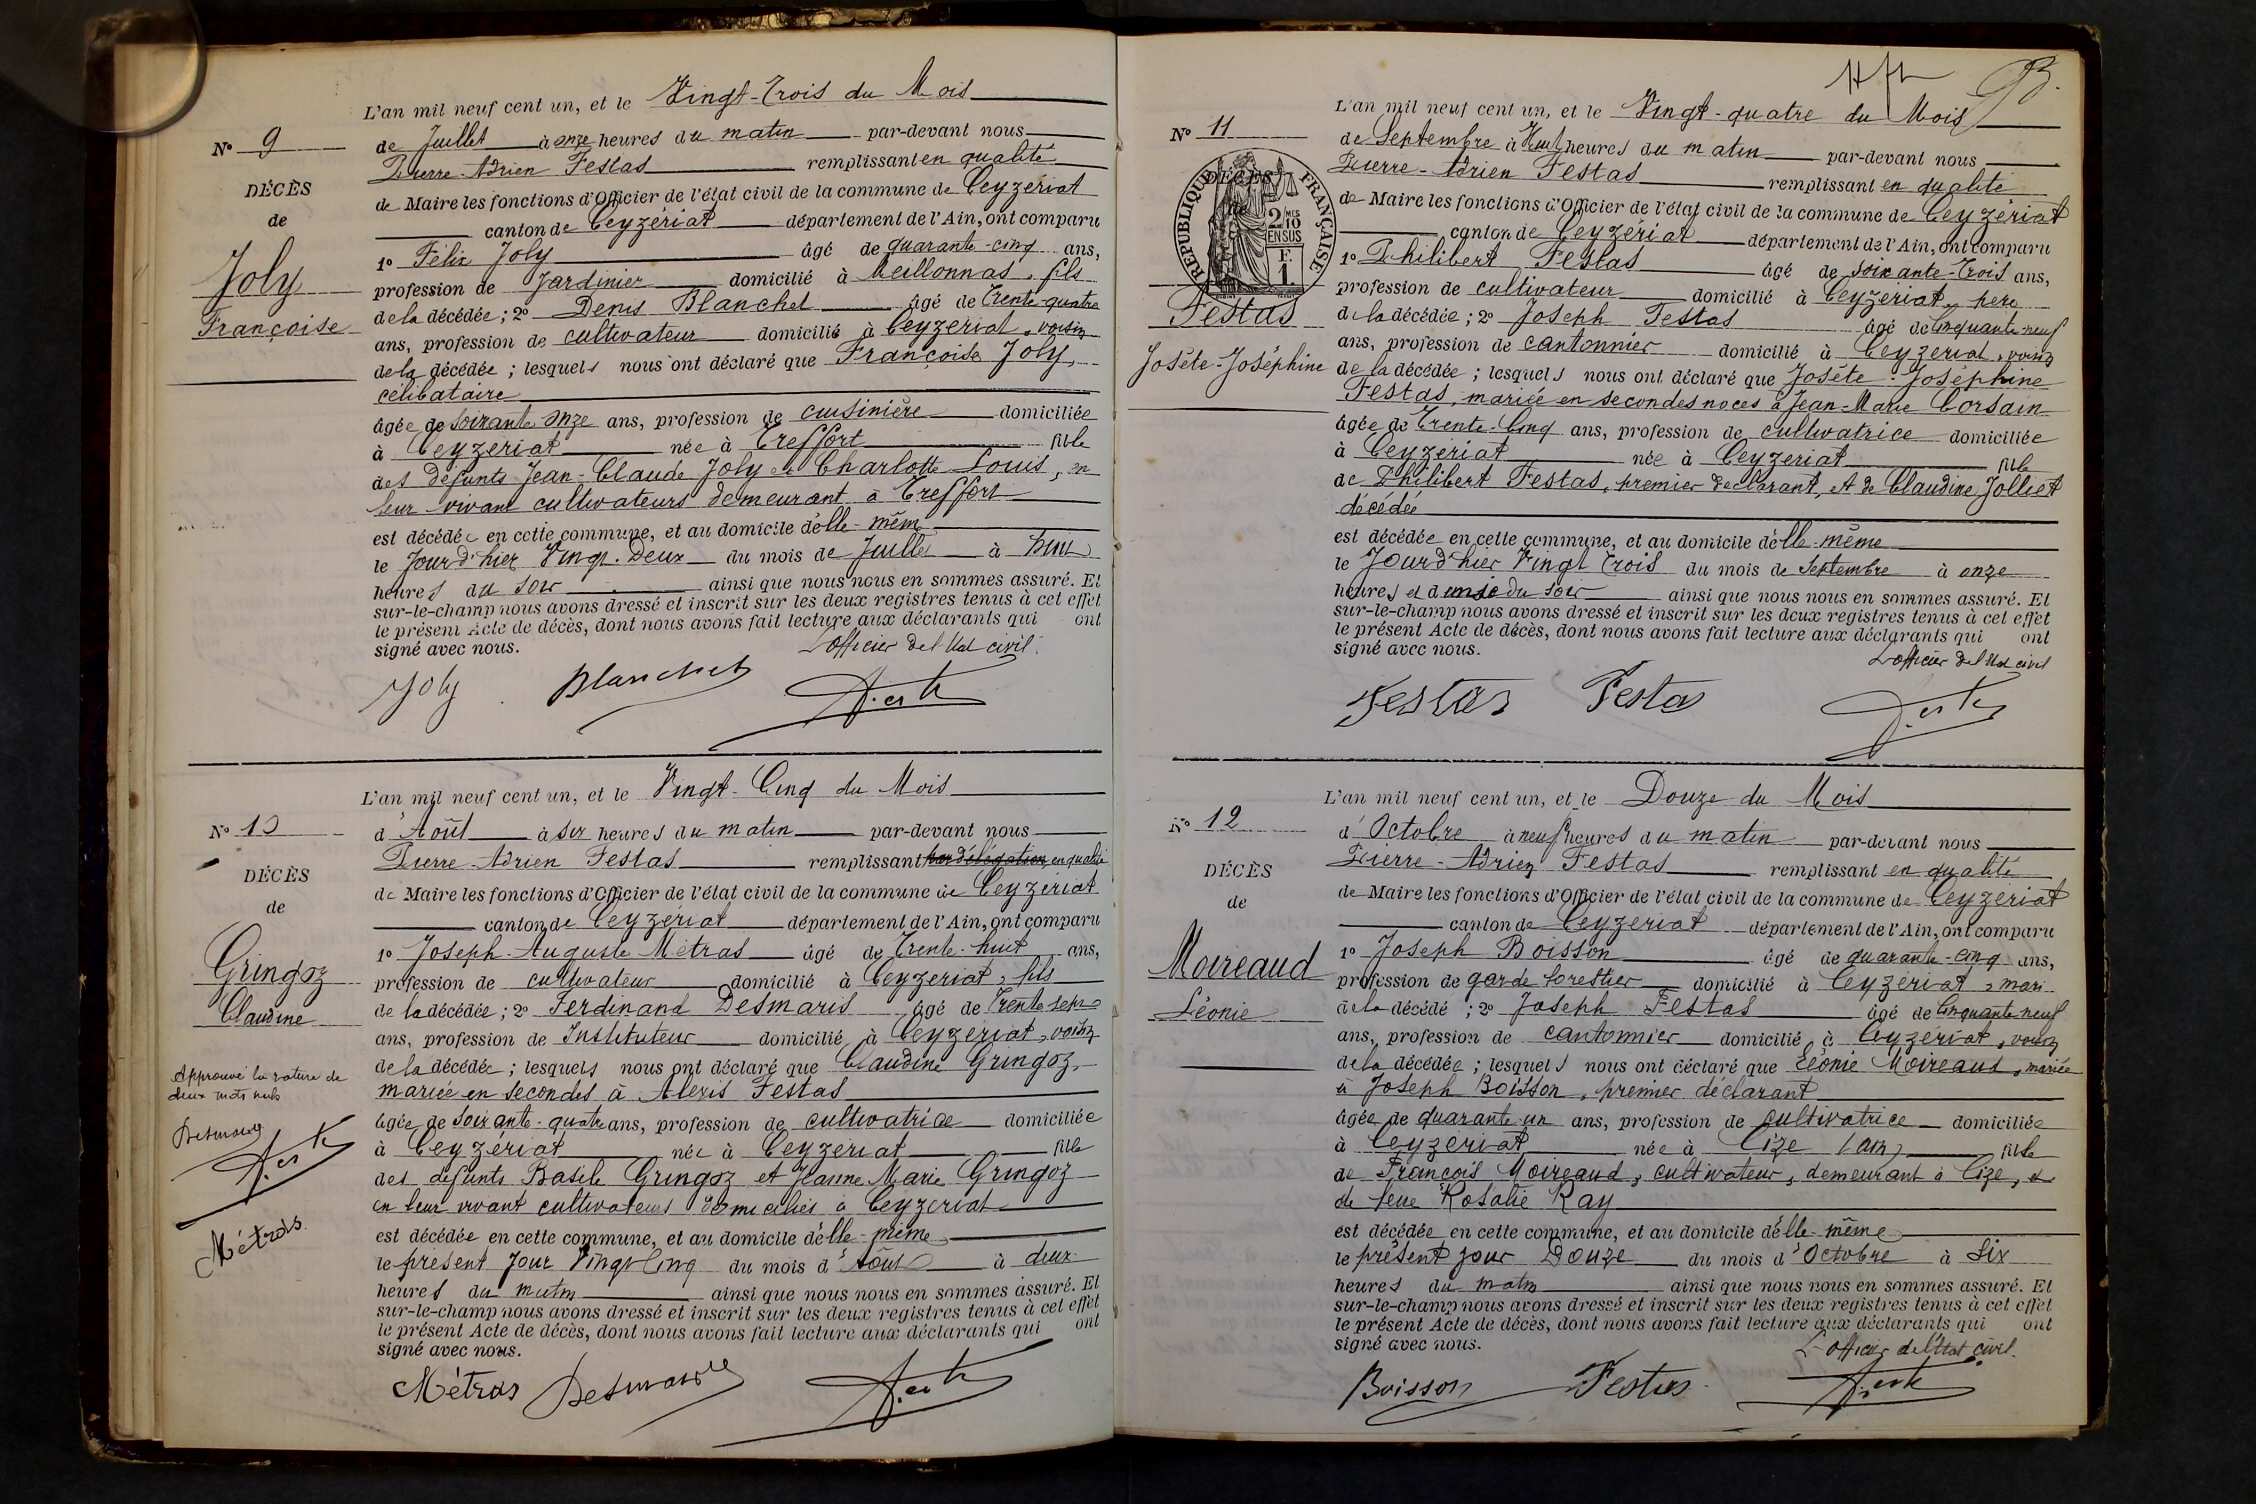 L'an mil neuf cent un, et le Vingt-Trois du Mois
N° 9
de Juillet à onze heures du matin par-devant nous
Pierre-Adrien Festas remplissant en qualité
DÉCÈS
de Maire les fonctions d'Officier de l'état civil de la commune de Ceyzériat
de
canton de Ceyzériat département de l'Ain, ont comparu
Joly
Françoise
1° Félix Joly âgé de quarante-cinq ans,
profession de Jardinier domicilié à Meillonnas, fils
de la décédée; 2° Denis Blanchet âgé de Trente-quatre
ans, profession de cultivateur domicilié à Ceyzériat, voisin
de la décédée; lesquels nous ont déclaré que Françoise Joly,
célibataire
âgée de soixante onze ans, profession de cuisinière domiciliée
à Ceyzériat née à Treffort fille
des défunts Jean-Claude Joly et Charlotte Louis, en
leur vivant cultivateurs demeurant à Treffort
est décédée en cette commune, et au domicile d'elle-même
le Jour d'hier Vingt-Deux du mois de Juillet à huit
heures du soir ainsi que nous nous en sommes assuré. Et
sur-le-champ nous avons dressé et inscrit sur les deux registres tenus à cet effet
le présent Acte de décès, dont nous avons fait lecture aux déclarants qui ont
signé avec nous. L'officier de l'état civil.
Joly Blanchet
L'an mil neuf cent un, et le Vingt-Cinq du Mois
N° 10
d'Août à six heures du matin par-devant nous
Pierre-Adrien Festas remplissant par délégation, en qualité
DÉCÈS
de Maire les fonctions d'Officier de l'état civil de la commune de Ceyzériat
de
canton de Ceyzériat département de l'Ain, ont comparu
Gringoz
Claudine
1° Joseph-Auguste Métras âgé de Trente-huit ans,
profession de cultivateur domicilié à Ceyzériat, fils
de la décédée; 2° Ferdinand Desmaris âgé de Trente sept
ans, profession de Instituteur domicilié à Ceyzériat, voisin
de la décédée; lesquels nous ont déclaré que Claudine Gringoz,
mariée en secondes à Alexis Festas
Approuvé la rature de
deux mots nuls
Métras
âgée de soixante-quatre ans, profession de cultivatrice domiciliée
à Ceyzériat née à Ceyzériat fille
des défunts Basile Gringoz et Jeanne Marie Gringoz
en leur vivant cultivateurs domiciliés à Ceyzériat
est décédée en cette commune, et au domicile d'elle-même
le présent jour Vingt-Cinq du mois d'Août à deux
heures du matin ainsi que nous nous en sommes assuré. Et
sur-le-champ nous avons dressé et inscrit sur les deux registres tenus à cet effet
le présent Acte de décès, dont nous avons fait lecture aux déclarants qui ont
signé avec nous.
Métras
L'an mil neuf cent un, et le Vingt-quatre du Mois
N° 11
de Septembre à Huit heures du matin par-devant nous
Pierre-Adrien Festas remplissant en qualité
DÉCÈS
RÉPUBLIQUE FRANÇAISE
2/10 EN SUS
F. 1
de Maire les fonctions d'Officier de l'état civil de la commune de Ceyzériat
canton de Ceyzériat département de l'Ain, ont comparu
Festas
Josète-Joséphine
1° Philibert Festas âgé de soixante-Trois ans,
profession de cultivateur domicilié à Ceyzériat, père
de la décédée; 2° Joseph Festas âgé de Cinquante neuf
ans, profession de cantonnier domicilié à Ceyzériat, voisin
de la décédée; lesquels nous ont déclaré que Josète-Joséphine
Festas, mariée en secondes noces à Jean-Marie Corsain
âgée de Trente-Cinq ans, profession de cultivatrice domiciliée
à Ceyzériat née à Ceyzériat fille
de Philibert Festas, premier déclarant, et de Claudine Jolliet
décédée
est décédée en cette commune, et au domicile d'elle-même
le Jour d'hier Vingt Trois du mois de Septembre à onze
heures et demie du soir ainsi que nous nous en sommes assuré. Et
sur-le-champ nous avons dressé et inscrit sur les deux registres tenus à cet effet
le présent Acte de décès, dont nous avons fait lecture aux déclarants qui ont
signé avec nous. L'officier de l'état civil
Festas Festas
L'an mil neuf cent un, et le Douze du Mois
N° 12
d'Octobre à neuf heures du matin par-devant nous
Pierre-Adrien Festas remplissant en qualité
DÉCÈS
de Maire les fonctions d'Officier de l'état civil de la commune de Ceyzériat
de
canton de Ceyzériat département de l'Ain, ont comparu
Moireaud
Léonie
1° Joseph Boisson âgé de quarante-cinq ans,
profession de garde forestier domicilié à Ceyzériat, mari
de la décédé; 2° Joseph Festas âgé de Cinquante neuf
ans, profession de cantonnier domicilié à Ceyzériat, voisin
de la décédée; lesquels nous ont déclaré que Léonie Moireaud, mariée
à Joseph Boisson, premier déclarant
âgée de quarante-un ans, profession de cultivatrice domiciliée
à Ceyzériat née à Cize (ain) fille
de François Moireaud, cultivateur, demeurant à Cize, et
de feue Rosalie Ray
est décédée en cette commune, et au domicile d'elle-même
le présent jour Douze du mois d'Octobre à Six
heures du matin ainsi que nous nous en sommes assuré. Et
sur-le-champ nous avons dressé et inscrit sur les deux registres tenus à cet effet
le présent Acte de décès, dont nous avons fait lecture aux déclarants qui ont
signé avec nous. L'officier de l'état civil.
Boisson Festas